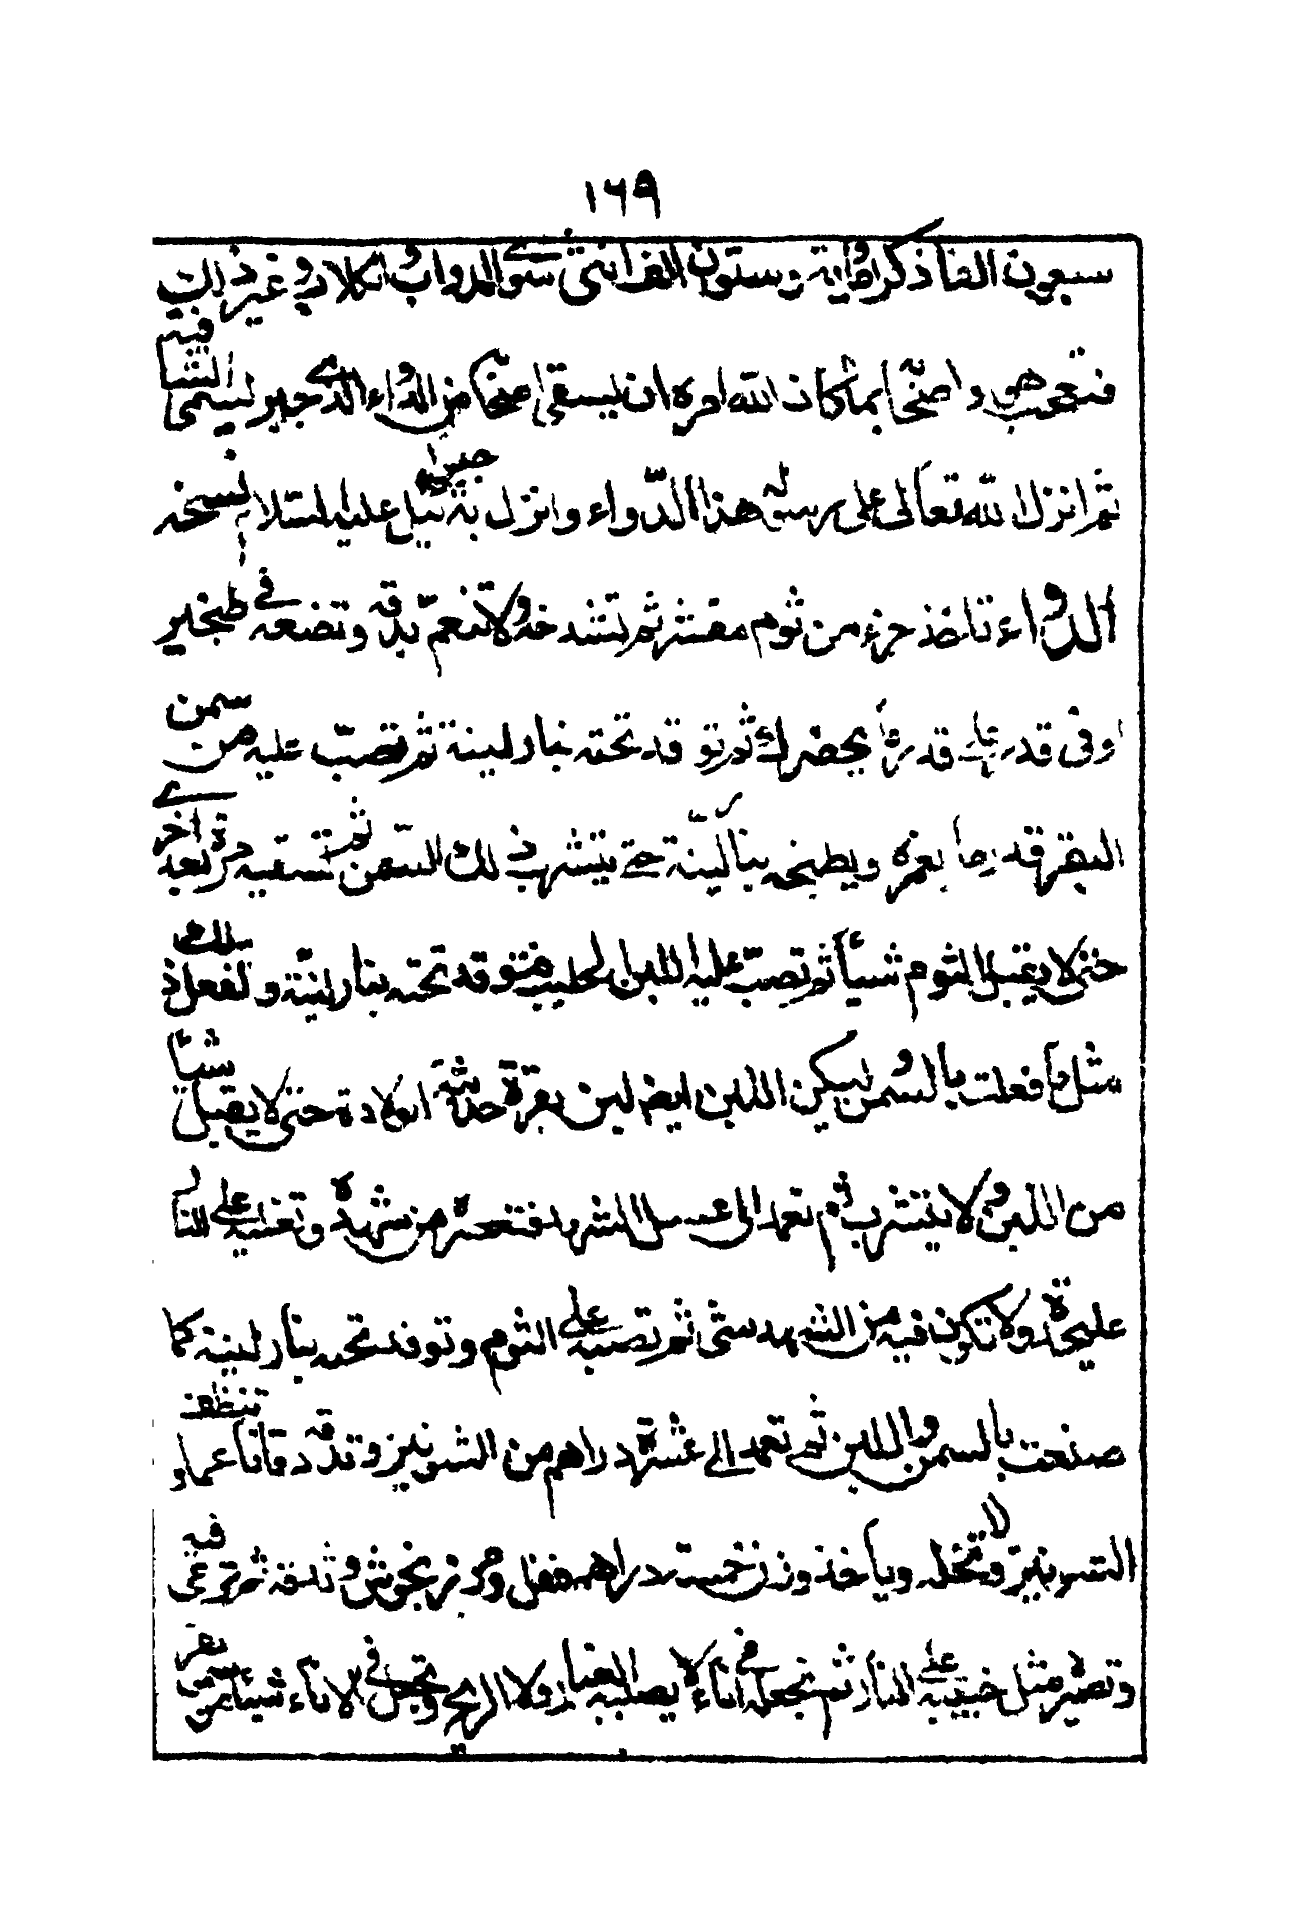 ١٦٩
سبعون الفا ذكرا ومایة وستون الف انثى سوى الدواب والكلاب وغير ذلك
فتعجب هو واصحابه مما كان الله امره ان يسقى اصحابه من الدواء الذي جبير ليسمى الشافيه
ثم انزل الله تعالى على رسوله هذا الدواء وانزل به جبرئيل عليه السلام نسخه
الدواء تاخذ جزء من ثوم مقشر ثم تشدخه ولا تنعم بدقه وتضعه في طنجير
او في قدر على قدر ما يحضرك ثم توقد تحته بنار لينة ثم تصب عليه من سمن
البقر قدر ما يغمره ويطبخه بنار لينة حتى يتشرب ذلك السمن ثم تسقيه مرة بعد اخرى
حتى لا يقبل الثوم شيأ ثم تصب عليه اللبن الحليب فتوقد تحته بنار لينة وتفعل ذلك
مثل ما فعلت بالسمن وليكن اللبن ايضا لبن بقرة حديثة الولادة حتى لا يقبل شيأ
من اللبن ولا يتشرب ثم تعمد الى عسل الشهد فتعصره من شهده وتغليه على النار
عليحدة ولا تكون فيه من الشهد شئ ثم تصبه على الثوم وتوقد تحته بنار لينه كما
صنعت بالسمن واللبن ثم تعمد الى عشرة دراهم من الشونيز وتدقه دقا ناعما وتنظف
الشونيز ولا تنخله وياخذ وزن خمسة دراهم فلفل ومرزنجوش وتدقه ثم ترمى فيه
وتصيره مثل خبيصة على النار ثم تجعله في اناء لا يصيبه الغبار ولا الريح وتجعل في الاناء شيئا من سمن بقر